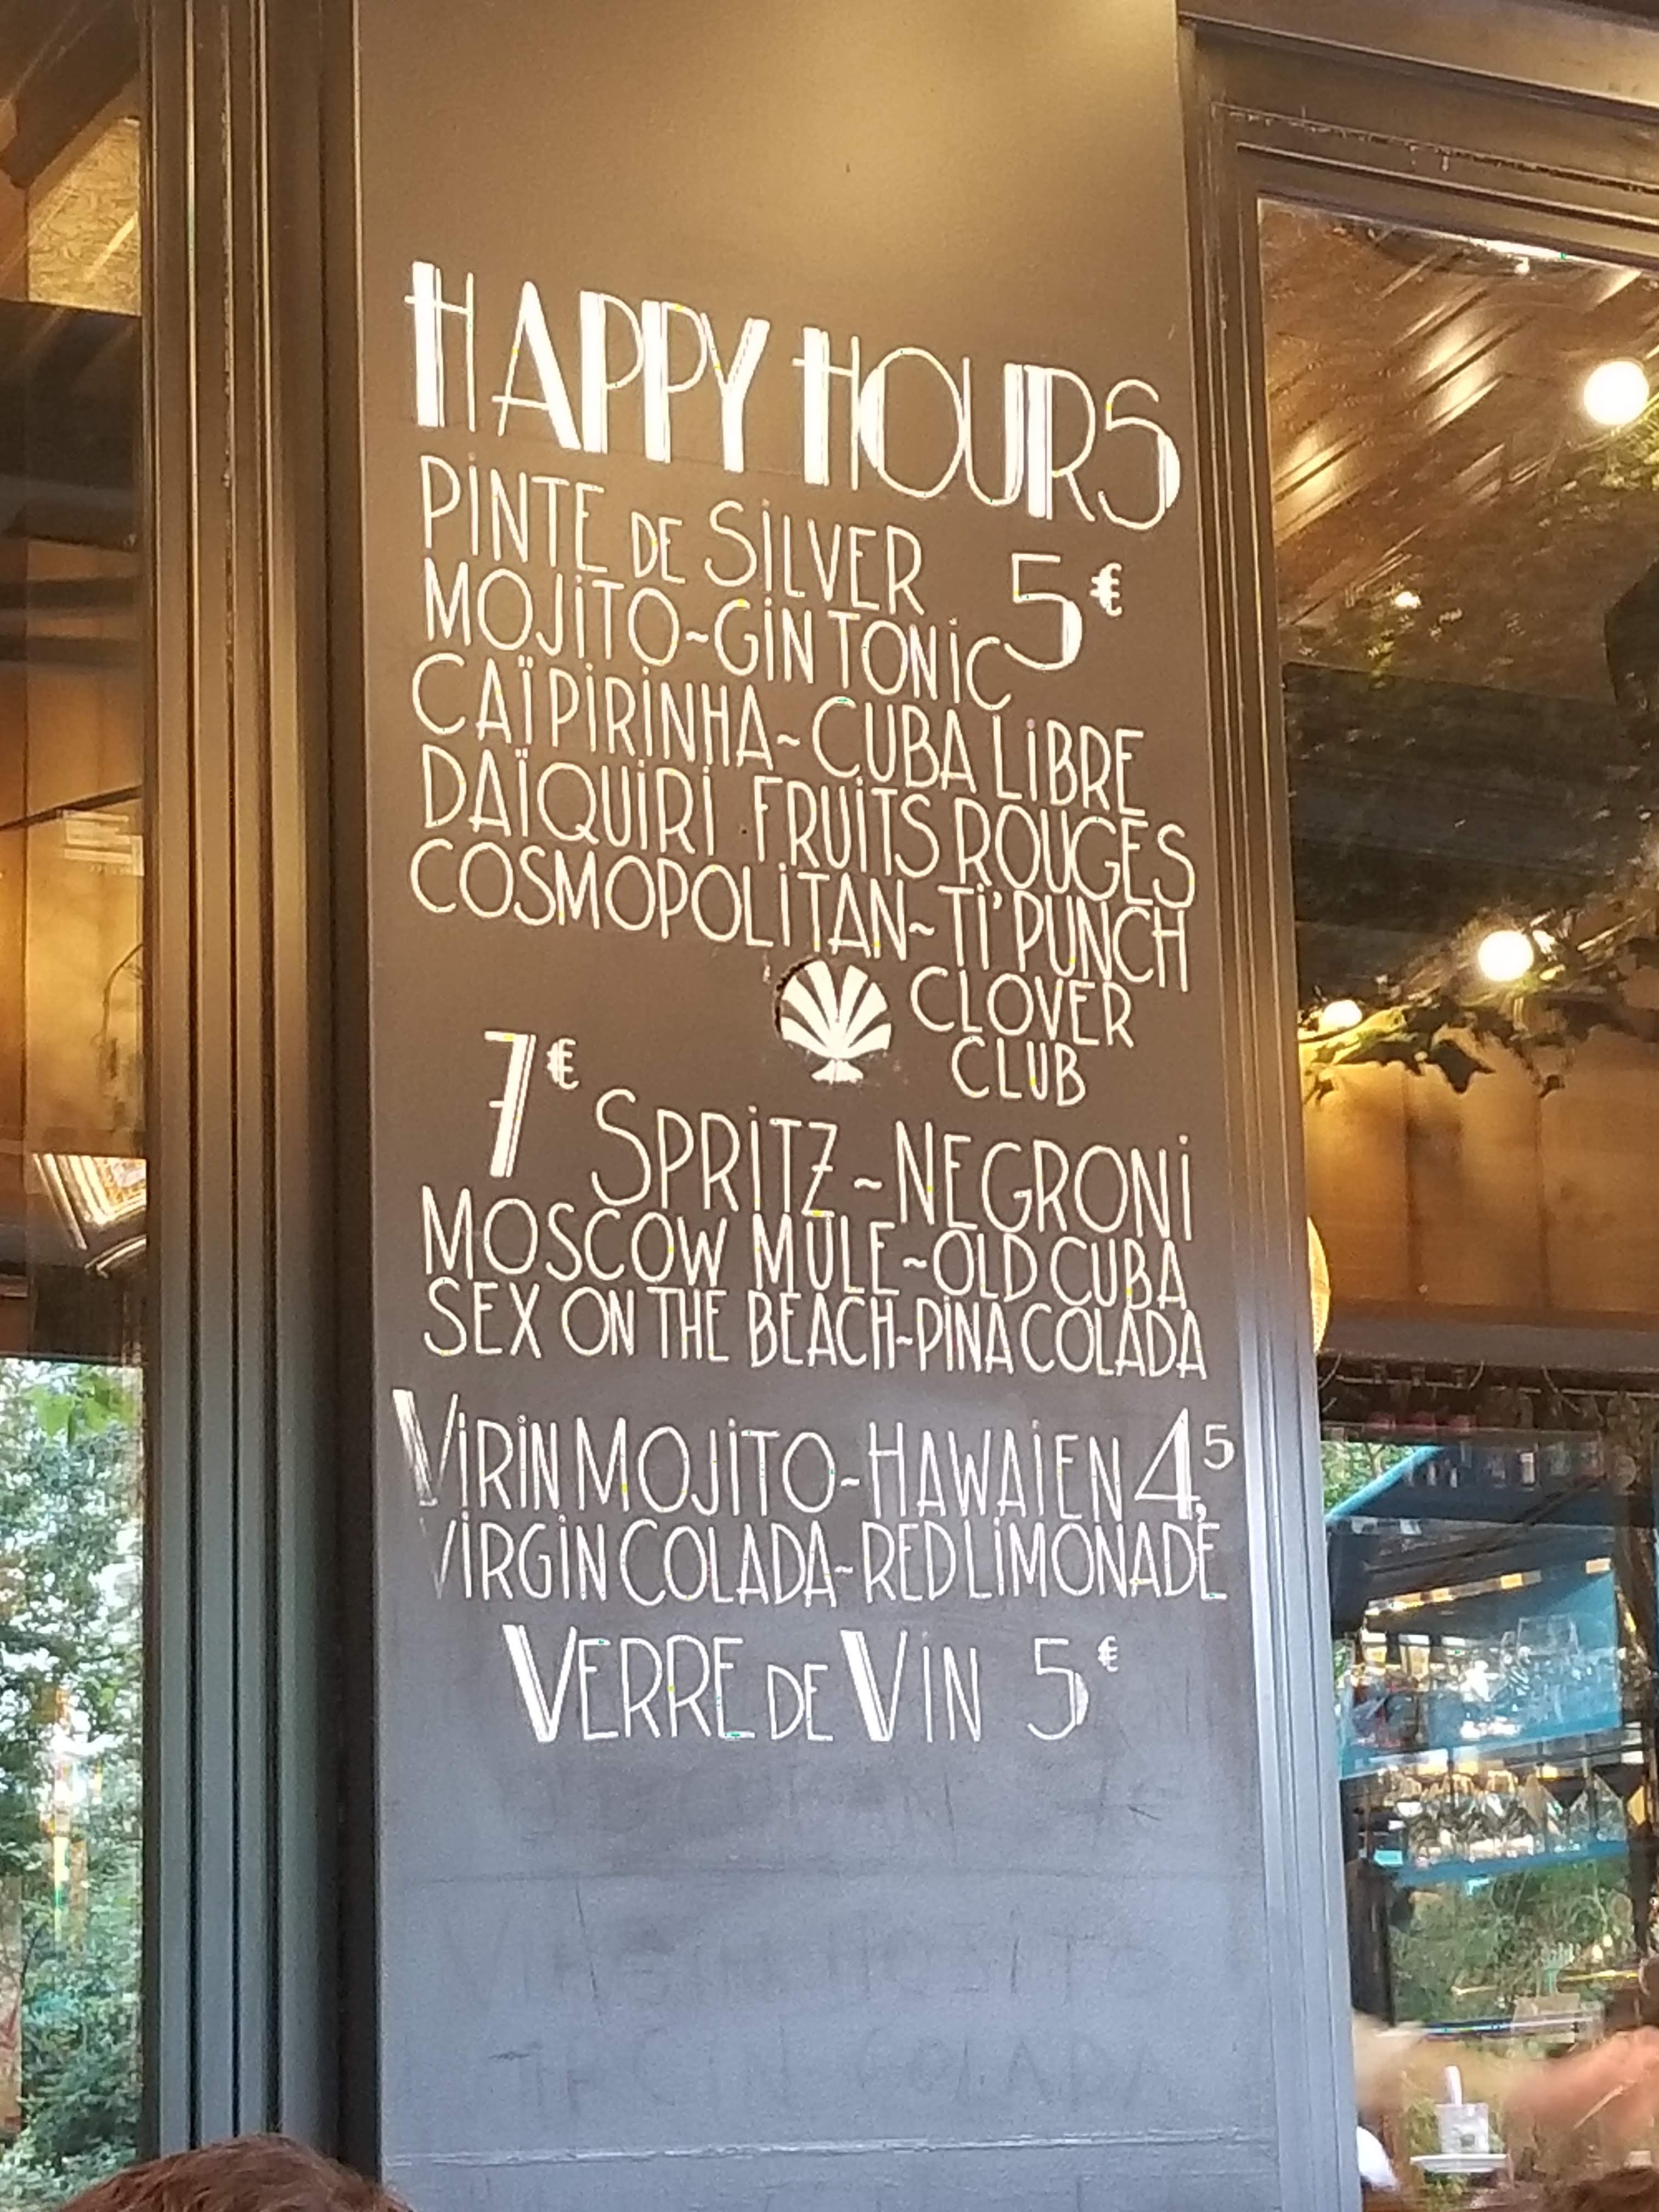 HAPPY HOURS
PINTE DE SILVER 5€
MOJITO~GIN TONIC
CAÏPIRINHA~CUBA LIBRE
DAÏQUIRI FRUITS ROUGES
COSMOPOLITAN~TI'PUNCH
CLOVER
CLUB
7€ SPRITZ~NEGRONI
MOSCOW MULE~OLD CUBA
SEX ON THE BEACH~PINA COLADA
VIRIN MOJITO-HAWAIEN 4,5
VIRGIN COLADA~RED LIMONADE
VERRE DE VIN 5€